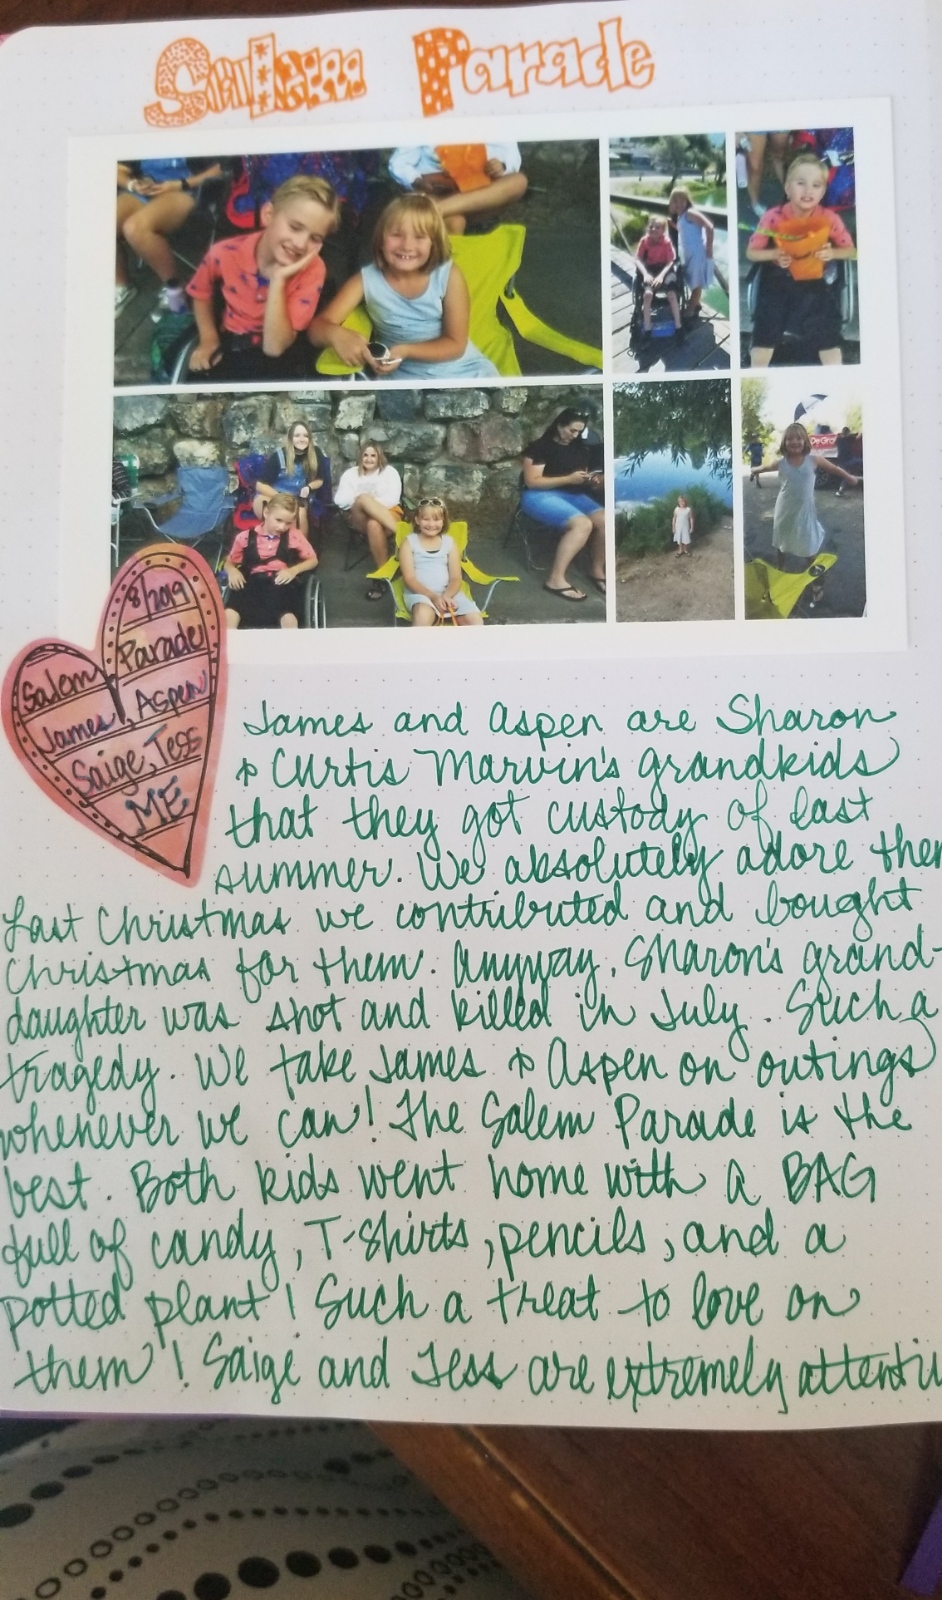 Salem Parade
8/2019
Parade
Salem
James, Aspen
Saige, Tess
ME
James and Aspen are Sharon
& Curtis Marvin's grandkids
that they got custody of last
summer. We absolutely adore them
Last Christmas we contributed and bought
Christmas for them. Anyway, Sharon's grand-
daughter was shot and killed in July. Such a
tragedy. We take James & Aspen on outings
whenever we can! The Salem Parade is the
best. Both kids went home with a BAG
full of candy, T-shirts, pencils, and a
potted plant! Such a treat to love on
them! Saige and Tess are extremely attentiv